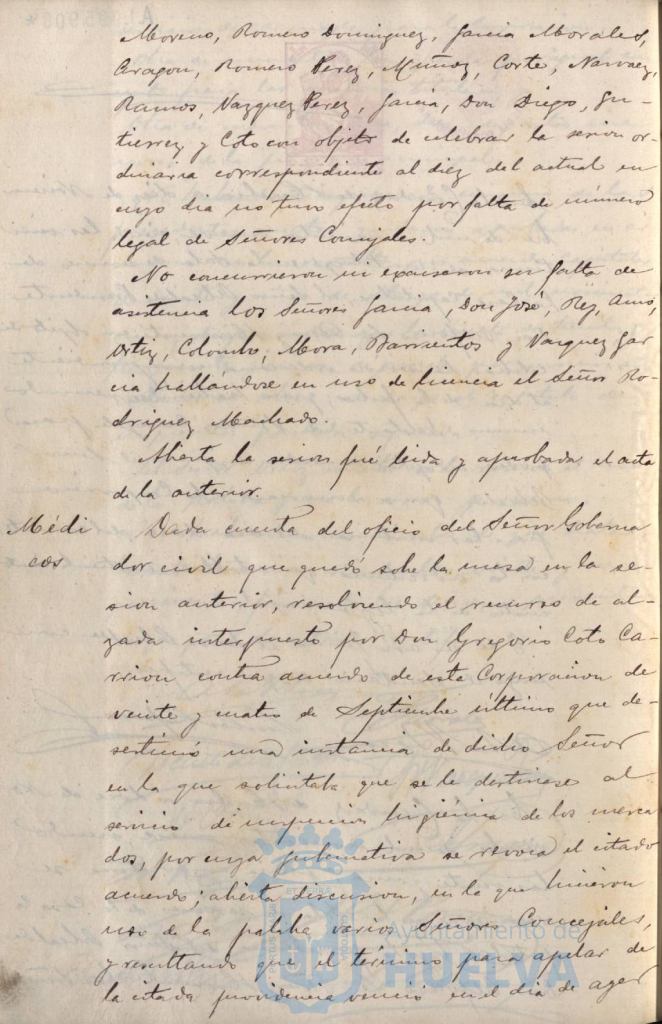 Moreno, Romero Dominguez, Garcia Morales,
Aragon, Romero Perez, Muñoz, Corte, Narvaez,
Ramos, Vazquez Perez, Garcia, Don Diego, Gu-
tierrez y Coto con objeto de celebrar la sesion or-
dinaria correspondiente al diez del actual en
cuyo dia no tuvo efecto por falta de número
legal de Señores Concejales.
No concurrieron ni excusaron su falta de
asistencia los Señores Garcia, Don José, Rey,
Ortiz, Colombo, Mora, Barrientos y Vazquez Gar
cia hallándose en uso de licencia el Señor Ro-
driguez Machado.
Abierta la sesion fué leida y aprobada el acta
de la anterior.
Médi
cos
Dada cuenta del oficio del Señor Goberna
dor civil que quedó sobre la mesa en la se-
sion anterior, resolviendo el recurso de al-
zada interpuesto por Don Gregorio Coto Ca-
rrion contra acuerdo de esta Corporacion de
veinte y cuatro de Septiembre último que de-
sestimó una instancia de dicho Señor
en la que solicitaba que se le destinase al
servicio de inspeccion higiénica de los merca
dos, por cuya gubernativa se revoca el citado
acuerdo; abierta discusion, en la que hicieron
uso de la palabra varios Señores Concejales,
y resultando que el término para apelar de
la citada providencia venció en el dia de ayer
Ayuntamiento de
HUELVA